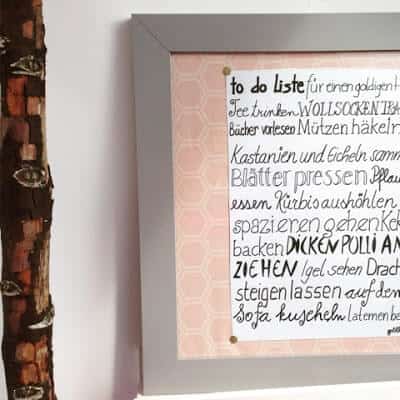 to do liste für einen goldigen
Tee trinken WOLLSOCKEN
Bücher vorlesen Mützen häkeln
Kastanien und Eicheln samm
Blätter pressen Pflau
essen Kürbis aushöhlen
spazieren gehen Kek
backen DICKEN PULLI AN
ZIEHEN Igel sehen Drach
steigen lassen auf dem
Sofa kuscheln laternen be